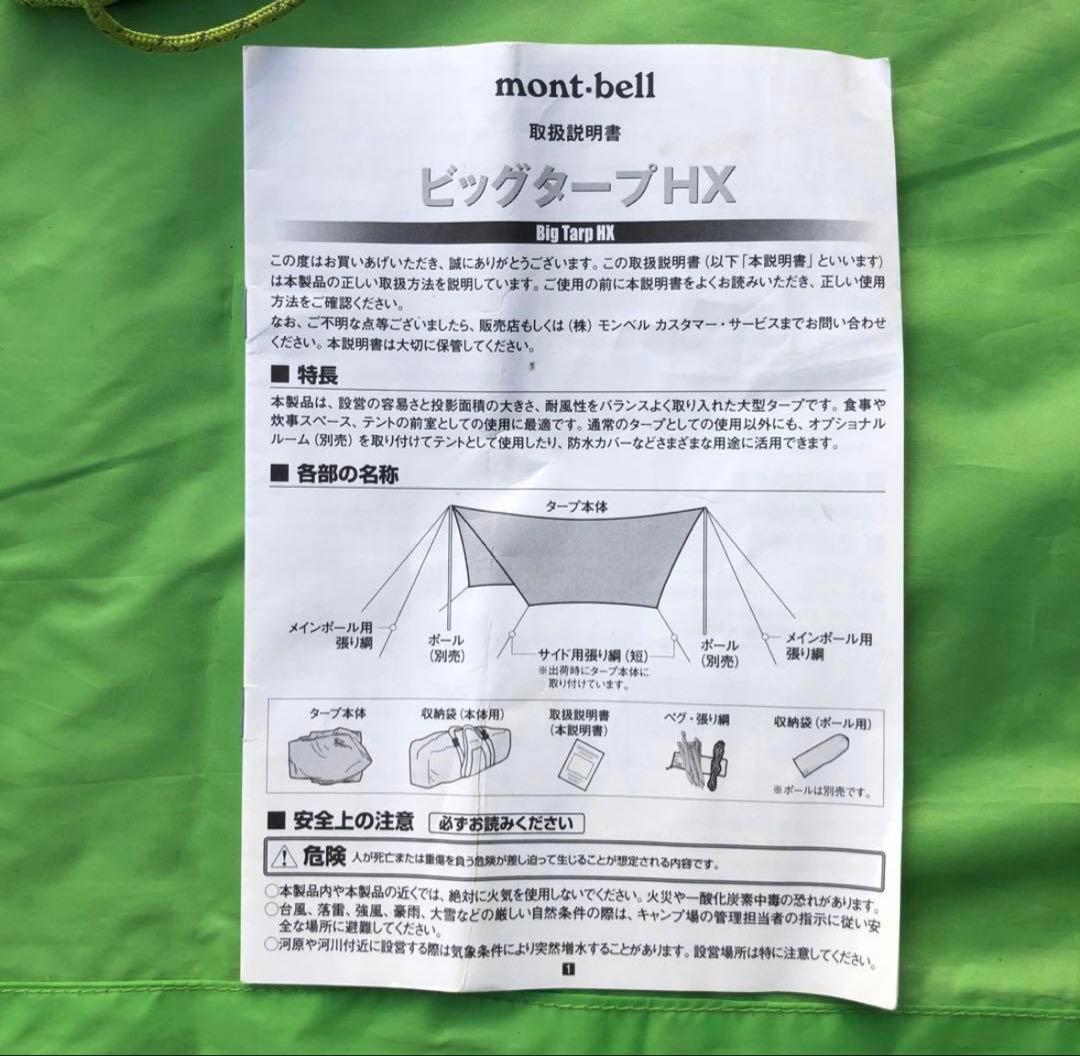 mont·bell
取扱説明書
ビッグタープHX
Big Tarp HX
この度はお買いあげいただき、誠にありがとうございます。この取扱説明書(以下「本説明書」といいます)
は本製品の正しい取扱方法を説明しています。ご使用の前に本説明書をよくお読みいただき、正しい使用
方法をご確認ください。
なお、ご不明な点等ございましたら、販売店もしくは(株)モンベル カスタマー・サービスまでお問い合わせ
ください。本説明書は大切に保管してください。
■ 特長
本製品は、設営の容易さと投影面積の大きさ、耐風性をバランスよく取り入れた大型タープです。食事や
炊事スペース、テントの前室としての使用に最適です。通常のタープとしての使用以外にも、オプショナル
ルーム(別売)を取り付けてテントとして使用したり、防水カバーなどさまざまな用途に活用できます。
■ 各部の名称
タープ本体
メインポール用
張り綱
ポール
(別売)
サイド用張り綱(短)
※出荷時にタープ本体に
取り付けています。
ポール
(別売)
メインポール用
張り綱
タープ本体
収納袋(本体用)
取扱説明書
(本説明書)
ペグ・張り綱
収納袋(ポール用)
※ポールは別売です。
■ 安全上の注意 必ずお読みください
危険 人が死亡または重傷を負う危険が差し迫って生じることが想定される内容です。
○本製品内や本製品の近くでは、絶対に火気を使用しないでください。火災や一酸化炭素中毒の恐れがあります。
○台風、落雷、強風、豪雨、大雪などの厳しい自然条件の際は、キャンプ場の管理担当者の指示に従い安
全な場所に避難してください。
○河原や河川付近に設営する際は気象条件により突然増水することがあります。設営場所は特に注意してください。
1